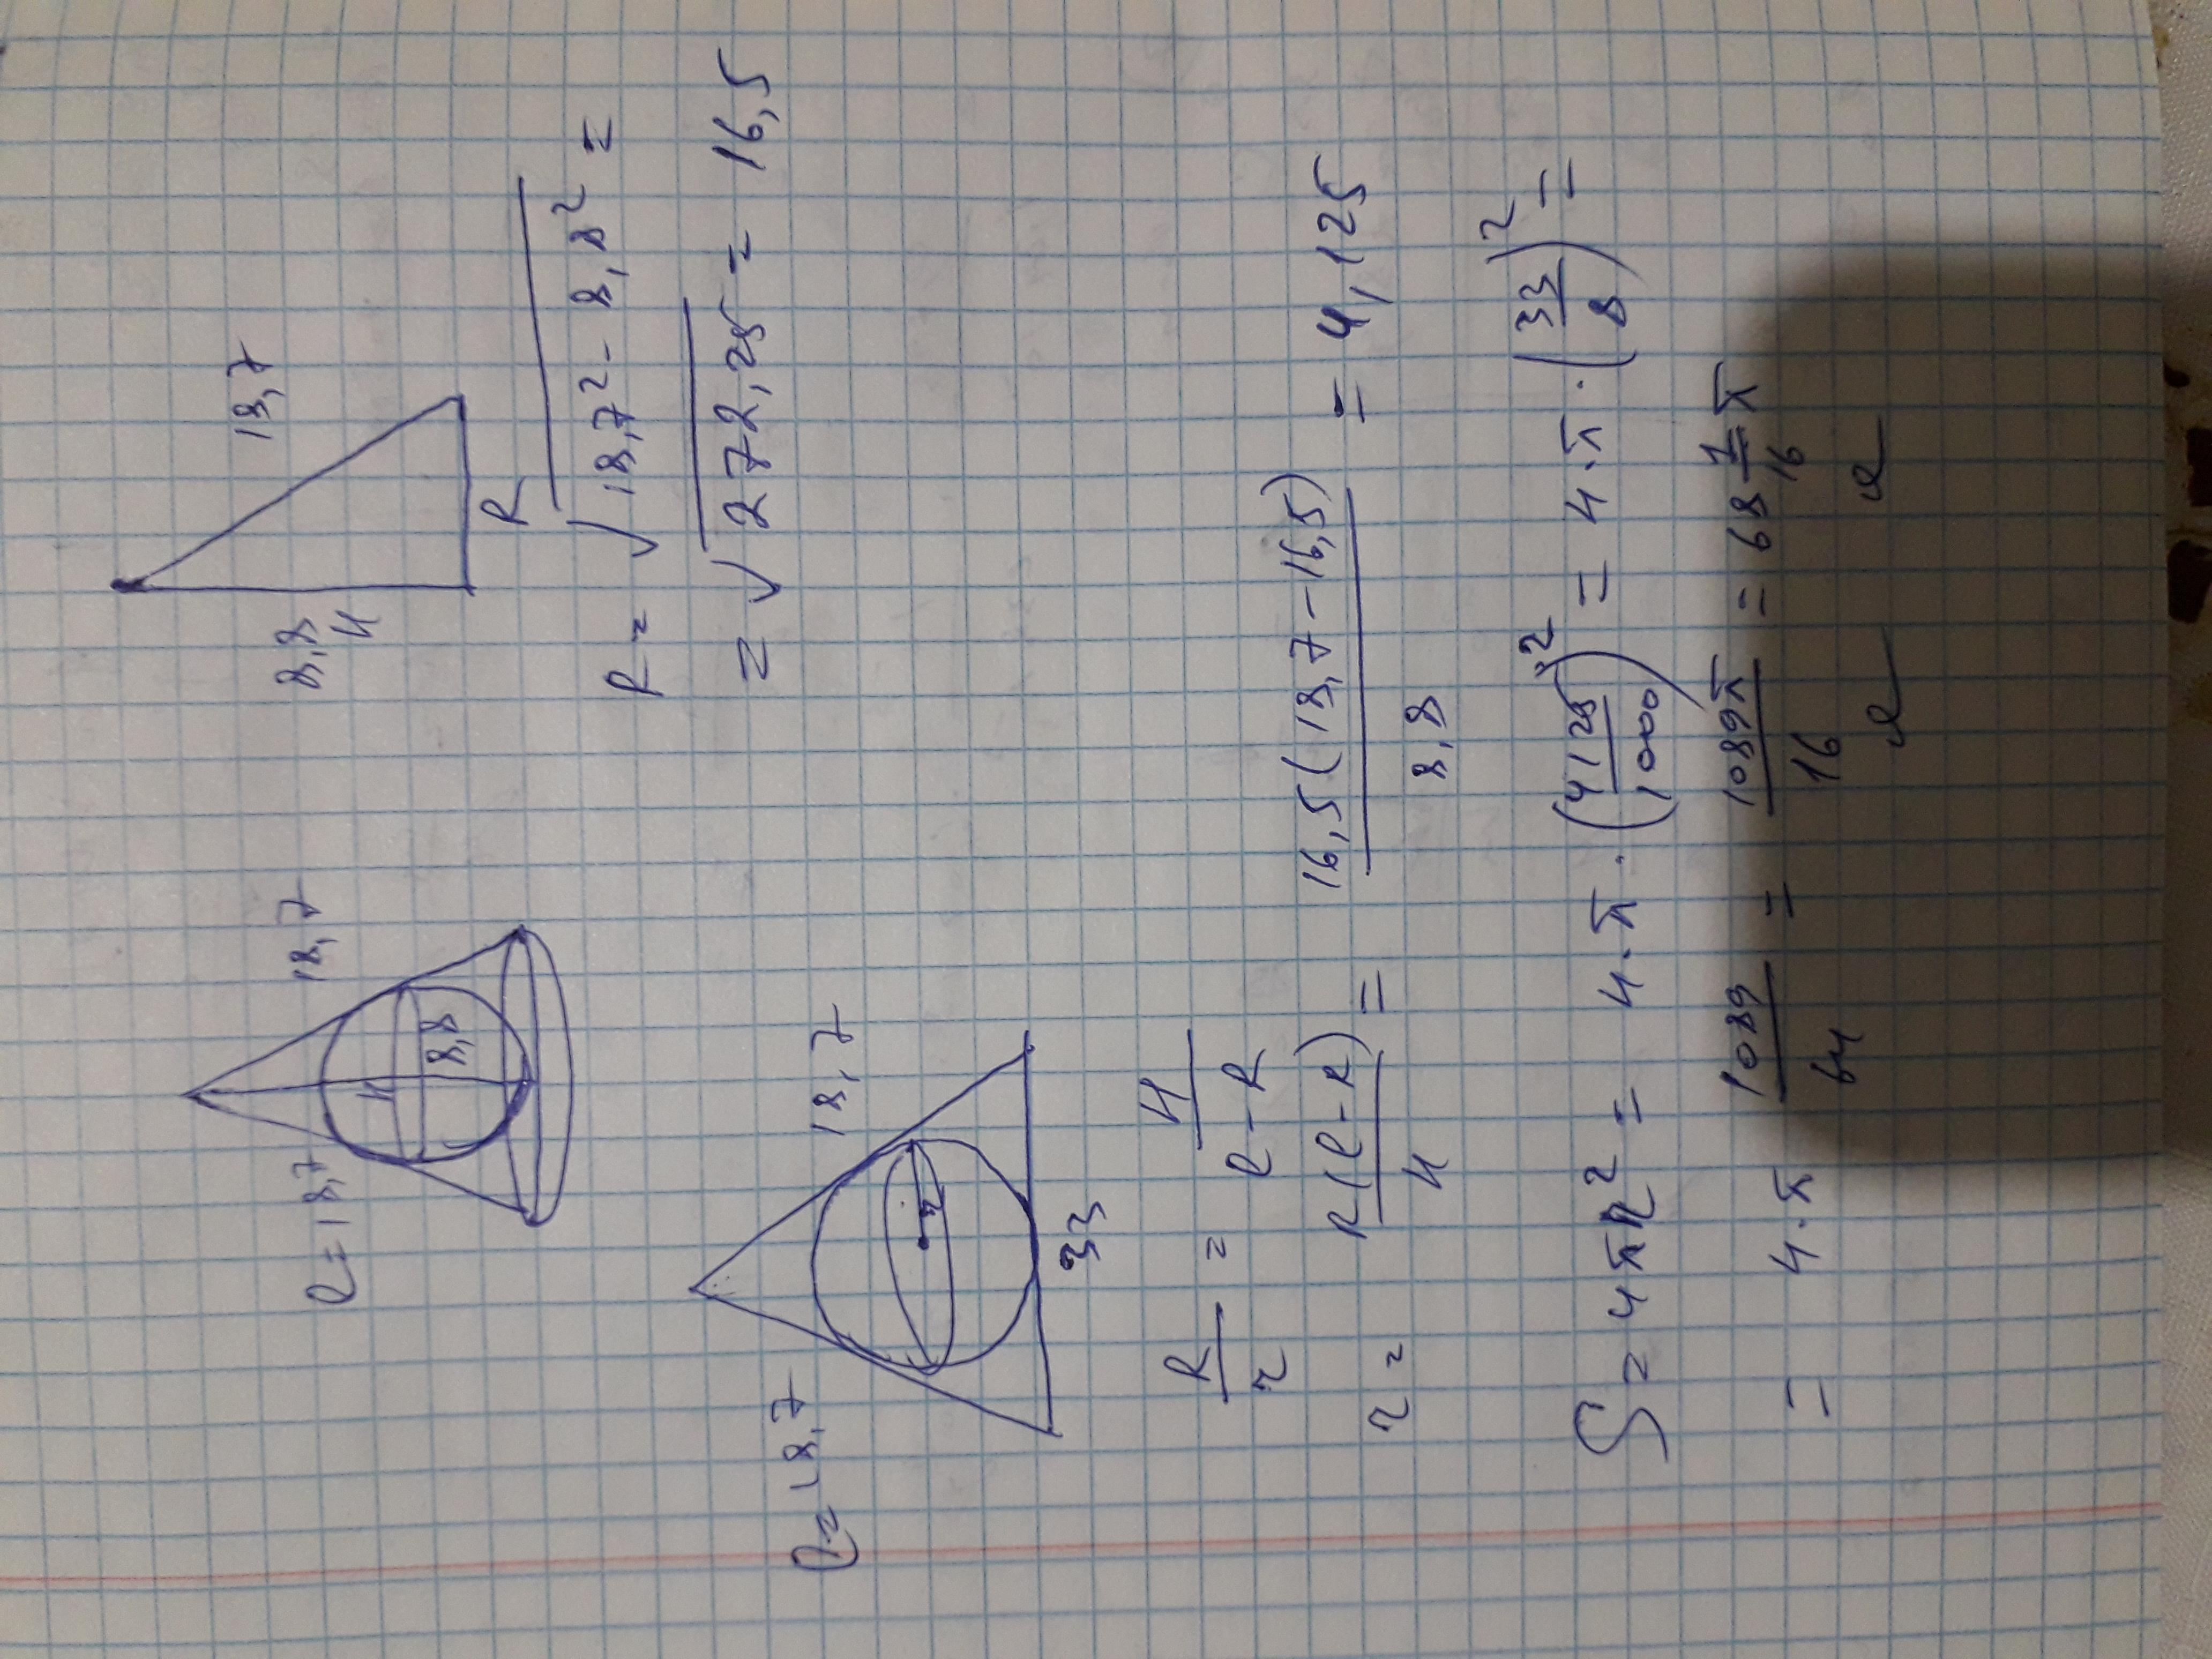 l = 18,7
18,7
H
8,8
8,8
H
18,7
R
R = √18,7² - 8,8² =
= √272,25 = 16,5
l = 18,7
18,7
r
33
R/r = H/(l - R)
r = R(l - R)/H = 16,5(18,7 - 16,5)/8,8 = 4,125
S = 4πR² = 4·π·(4125/1000)² = 4·π·(33/8)² =
= 4·π 1089/64 = 1089π/16 = 68 1/16 π